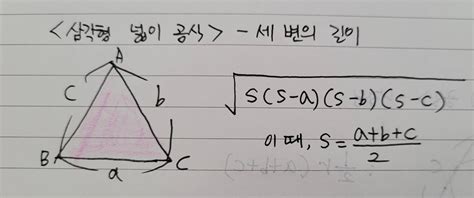 <삼각형 넓이 공식> - 세 변의 길이
A
c b
B a C
√s(s-a)(s-b)(s-c)
이때, s = a+b+c/2